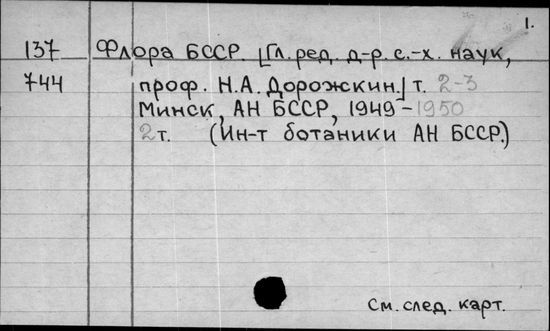 1.
137 Флора БССР. [Гл. ред. д-р. с.-х. наук,
744 проф. Н.А. Дорожкин.] т. 2-3
Минск, АН БССР, 1949-1950
2 т. (Ин-т ботаники АН БССР.)
См. след. карт.